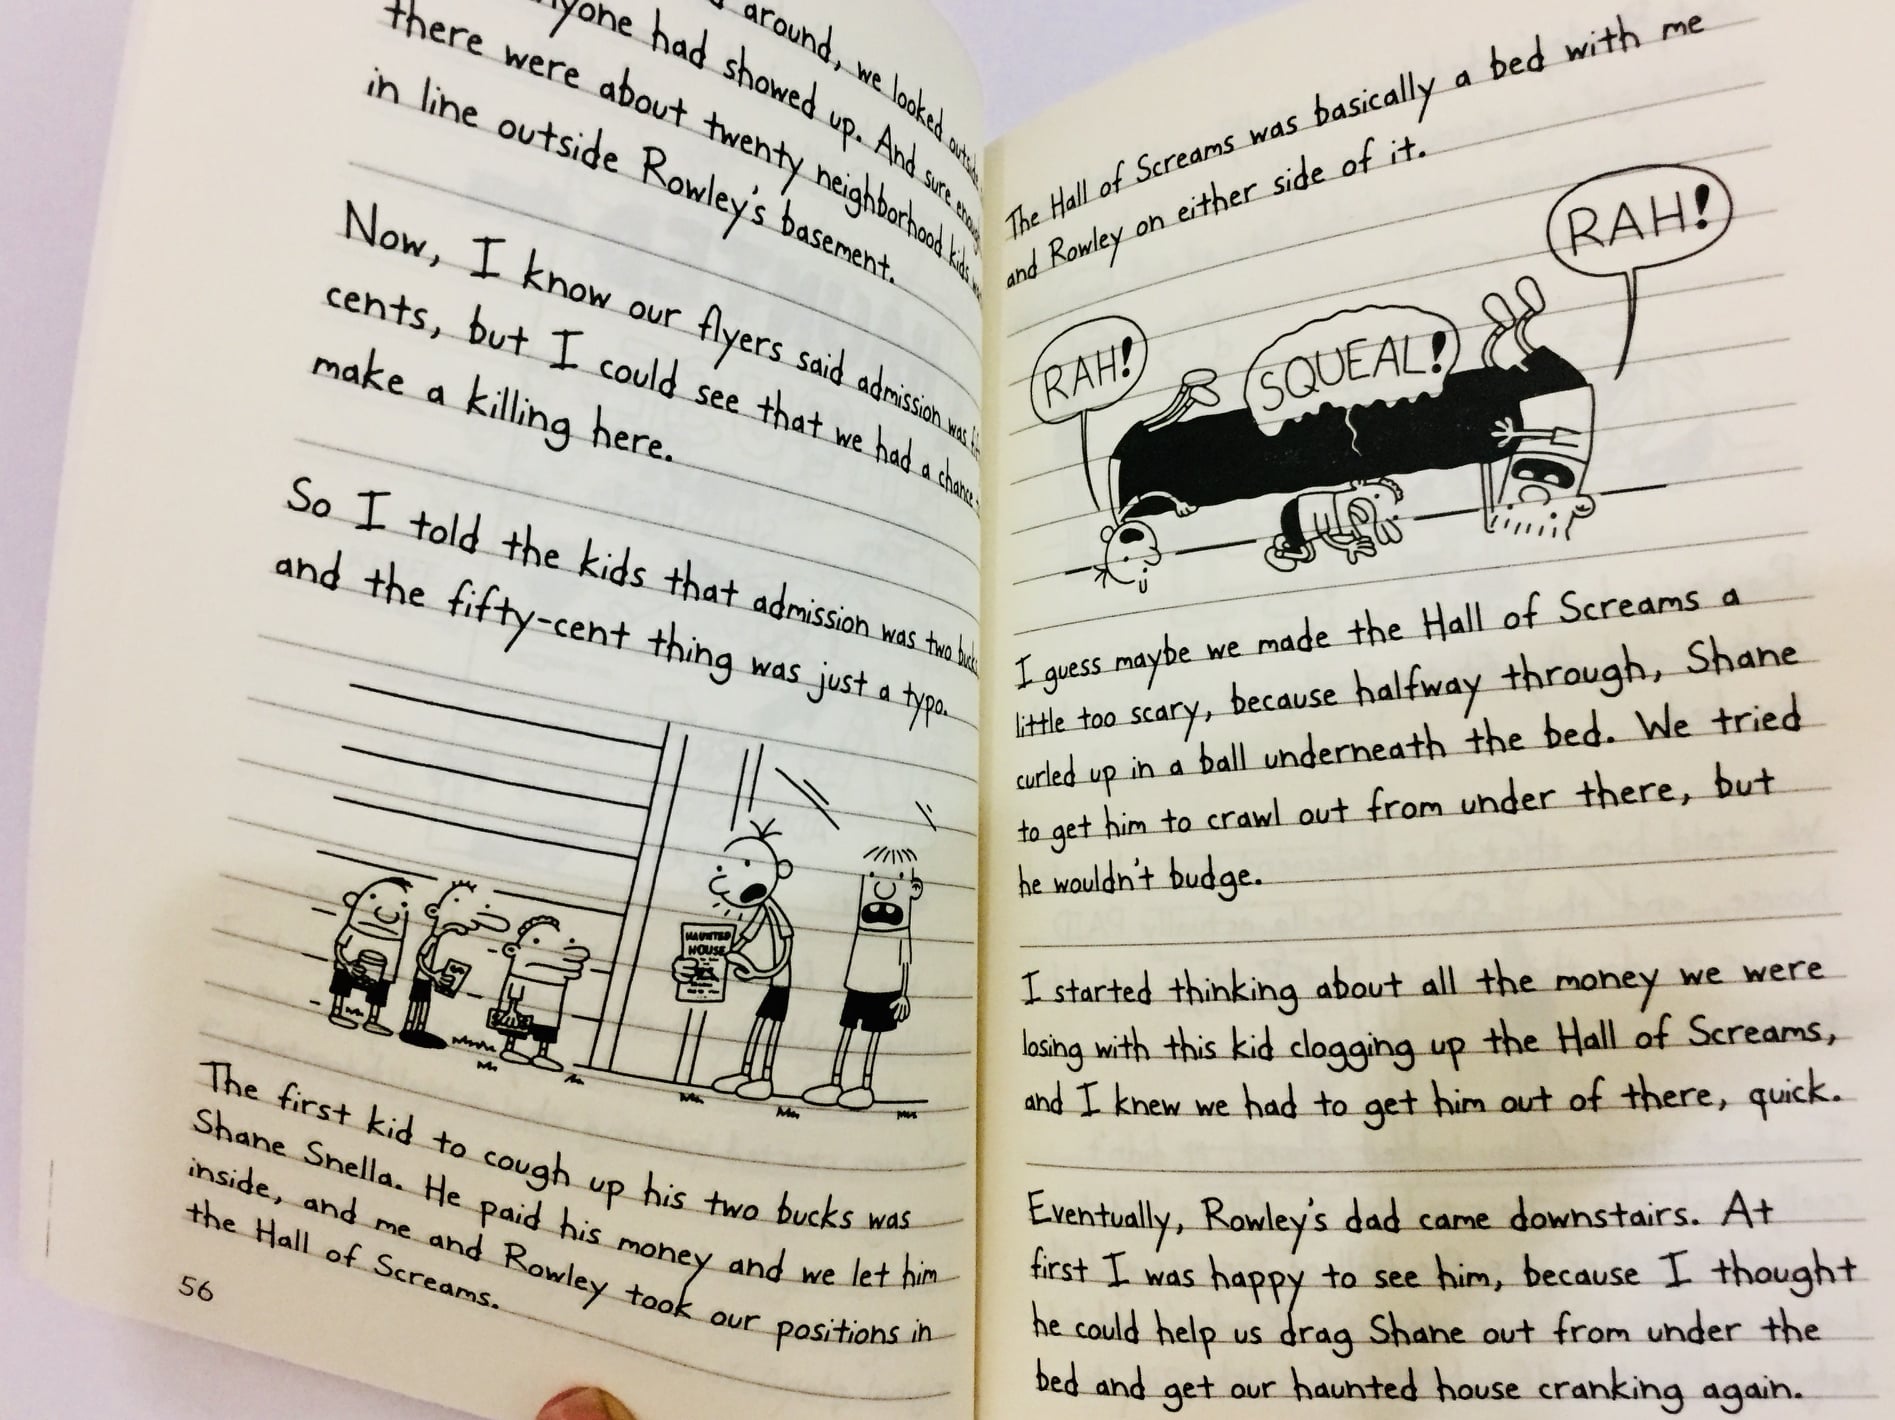 around, we looked
anyone had showed up. And sure enough
there were about twenty neighborhood kids
in line outside Rowley's basement.
Now, I know our flyers said admission was
cents, but I could see that we had a chance
make a killing here.
So I told the kids that admission was two bucks
and the fifty-cent thing was just a typo.
HAUNTED
HOUSE
The first kid to cough up his two bucks was
Shane Snella. He paid his money and we let him
inside, and me and Rowley took our positions in
the Hall of Screams.
56
The Hall of Screams was basically a bed with me
and Rowley on either side of it.
RAH!
SQUEAL!
RAH!
I guess maybe we made the Hall of Screams a
little too scary, because halfway through, Shane
curled up in a ball underneath the bed. We tried
to get him to crawl out from under there, but
he wouldn't budge.
I started thinking about all the money we were
losing with this kid clogging up the Hall of Screams,
and I knew we had to get him out of there, quick.
Eventually, Rowley's dad came downstairs. At
first I was happy to see him, because I thought
he could help us drag Shane out from under the
bed and get our haunted house cranking again.